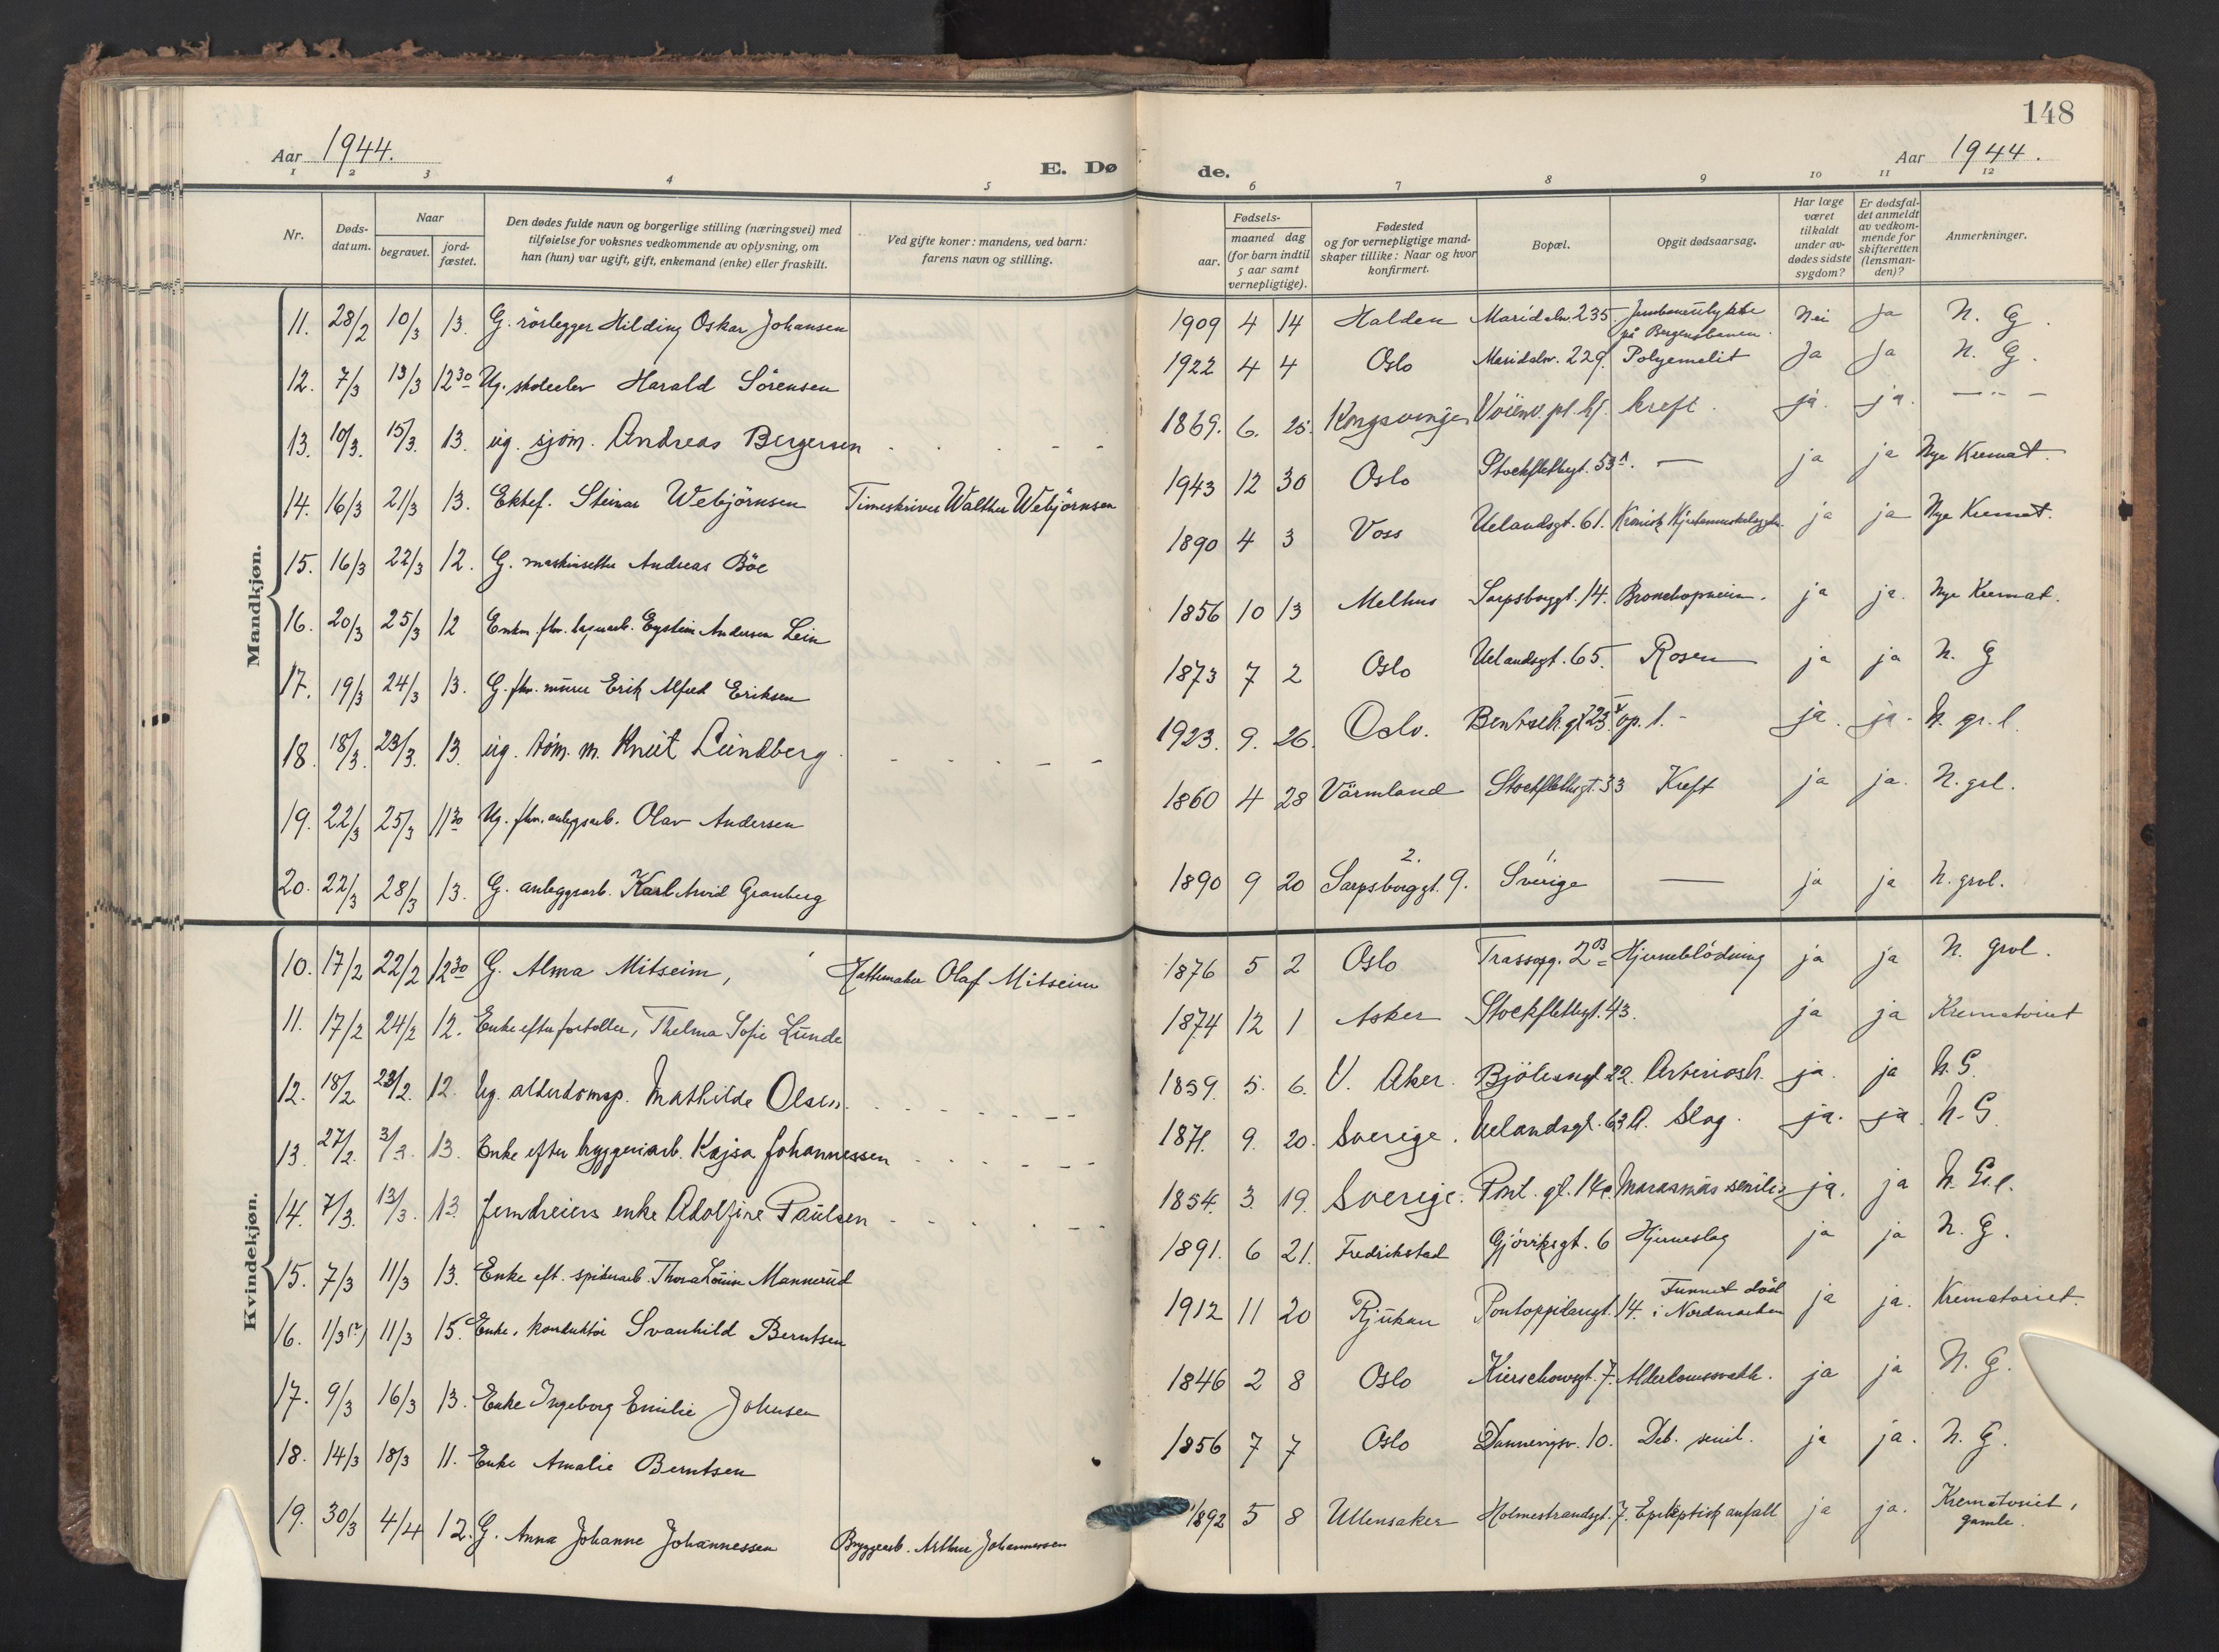 148
Aar 1944.
E. Dø
de.
Aar 1944.
1 2 3 4 5 6 7 8 9 10 11 12
Nr.
Døds-
datum.
Naar
begravet.
jord-
fæstet.
Den dødes fulde navn og borgerlige stilling (næringsvei) med
tilføielse for voksnes vedkommende av oplysning, om
han (hun) var ugift, gift, enkemand (enke) eller fraskilt.
Ved gifte koner: mandens, ved barn:
farens navn og stilling.
Fødsels-
aar.
maaned dag
(for barn indtil
5 aar samt
vernepligtige).
Fødested
og for vernepligtige mand-
skaper tillike: Naar og hvor
konfirmert.
Bopæl.
Opgit dødsaarsag.
Har læge
været
tilkaldt
under av-
dødes sidste
sygdom?
Er dødsfal-
det anmeldt
av vedkom-
mende for
skifteretten
(lensman-
den)?
Anmerkninger.
Mandkjøn.
11. 28/2 10/3 13. G. rörlegger Hilding Oskar Johansen 1909 4 14 Halden Maridalsv. 235 Jernbaneulykke på Bergensbanen. Nei Ja N. G.
12. 7/3 13/3 12 30 Ug. skoleelev Harald Sörensen 1922 4 4 Oslo Maridalsv. 229. Polyemelit Ja Ja N. G.
13. 10/3. 15/3. 13. ug. sjöm. Andreas Bergersen - - - 1869. 6. 25. Kongsvinger Voienv. pl. hj. kreft. ja. ja. - " -
14. 16/3 21/3 13. Ektef. Steinar Webjörnsen Timeskriver Walther Webjörnsen 1943 12 30 Oslo Stockflethsgt. 53A. — ja ja Nye Kremat.
15. 16/3 22/3 12. G. maskinsetter Andreas Böe 1890 4 3 Voss Uelandsgt. 61. Kronisk ja ja Nye Kremat.
16. 20/3 25/3 12 Enkm. fhv. Eystein Andersen Lein 1856 10 13 Melhus Sarpsborggt. 14. Bronchopneum. ja ja. Nye Kremat.
17. 19/3 24/3 13. G. fhv. murer Erik Alfred Eriksen 1873 7 2 Oslo Uelandsgt. 65. Rosen ja ja N. G
18. 18/3. 23/3. 13. ug. töm. m. Knut Lundberg - - - 1923. 9. 26. Oslo. Bentseh. gt 23 V op. 1. - ja. ja. N. gr. l.
19. 22/3 25/3 11 30 Ug. fhv. anlegsarb. Olav Andersen 1860 4 28 Värmland Stockflethsgt. 33 Kreft ja ja. N. grl.
20. 22/3 28/3 13. G. anleggsarb. Karl Arvid Granberg 1890 9 20 2. Sarpsborggt. 9. 1. Sverige — ja ja N. grvl.
Kvindekjøn.
10. 17/2 22/2 12 30 G. Alma Mitseim, Hattemaker Olaf Mitseim 1876 5 2 Oslo Trassopg. 2 B Hjerneblödning ja ja N. grvl.
11. 17/2 24/2 12. Enke efter fortoller, Thelma Sofie Lunde 1874 12 1 Asker Stockflethsgt. 43. ja ja Krematoriet
12. 18/2 23/2. 12. Ug. alderdomsp. Mathilde Olsen. - - - 1859. 5. 6. V. Aker. Bjölsengt 22. Arteriosk. ja. ja N. G.
13. 27/2. 3/3. 13. Enke efter bryggeriarb. Kajsa Johannessen - - - 1871. 9. 20. Sverige. Uelandsgt. 63 A. Slag. ja. ja N. G
14. 7/3. 13/3. 13. Jerndreiers enke Adolfine Paulsen - - - 1854. 3. 19. Sverige. Pont. gt. 14c Marasmus senilis ja. ja N. G.l.
15. 7/3 11/3 13. Enke eft. spikerarb. Thora Lovise Mannerud 1891. 6 21. Fredrikstad Gjöviksgt. 6 Hjerneslag ja ja N. G.
16. 1/3 (?) 11/3 15. Enke, konduktör Svanhild Berntsen 1912 11 20 Rjukan Pontoppidansgt. 14. Funnet död i Nordmarken ja ja. Krematoriet.
17. 9/3 16/3 13. Enke Ingeborg Emilie Johnsen 1846 2 8 Oslo Kierschowsgt. 7. Alderdomssvakh. ja ja N. G.
18. 14/3 18/3 11. Enke Amalie Berntsen 1856 7 7 Oslo Dannevigsv. 10. Deb. senil. ja ja. N. G.
19. 30/3 4/4 12. G. Anna Johanne Johannessen Bryggeriarb. Arthur Johannessen 1892 5 8 Ullensaker Holmestrandsgt. 7. Epileptisk anfall ja ja. Krematoriet, gamle.